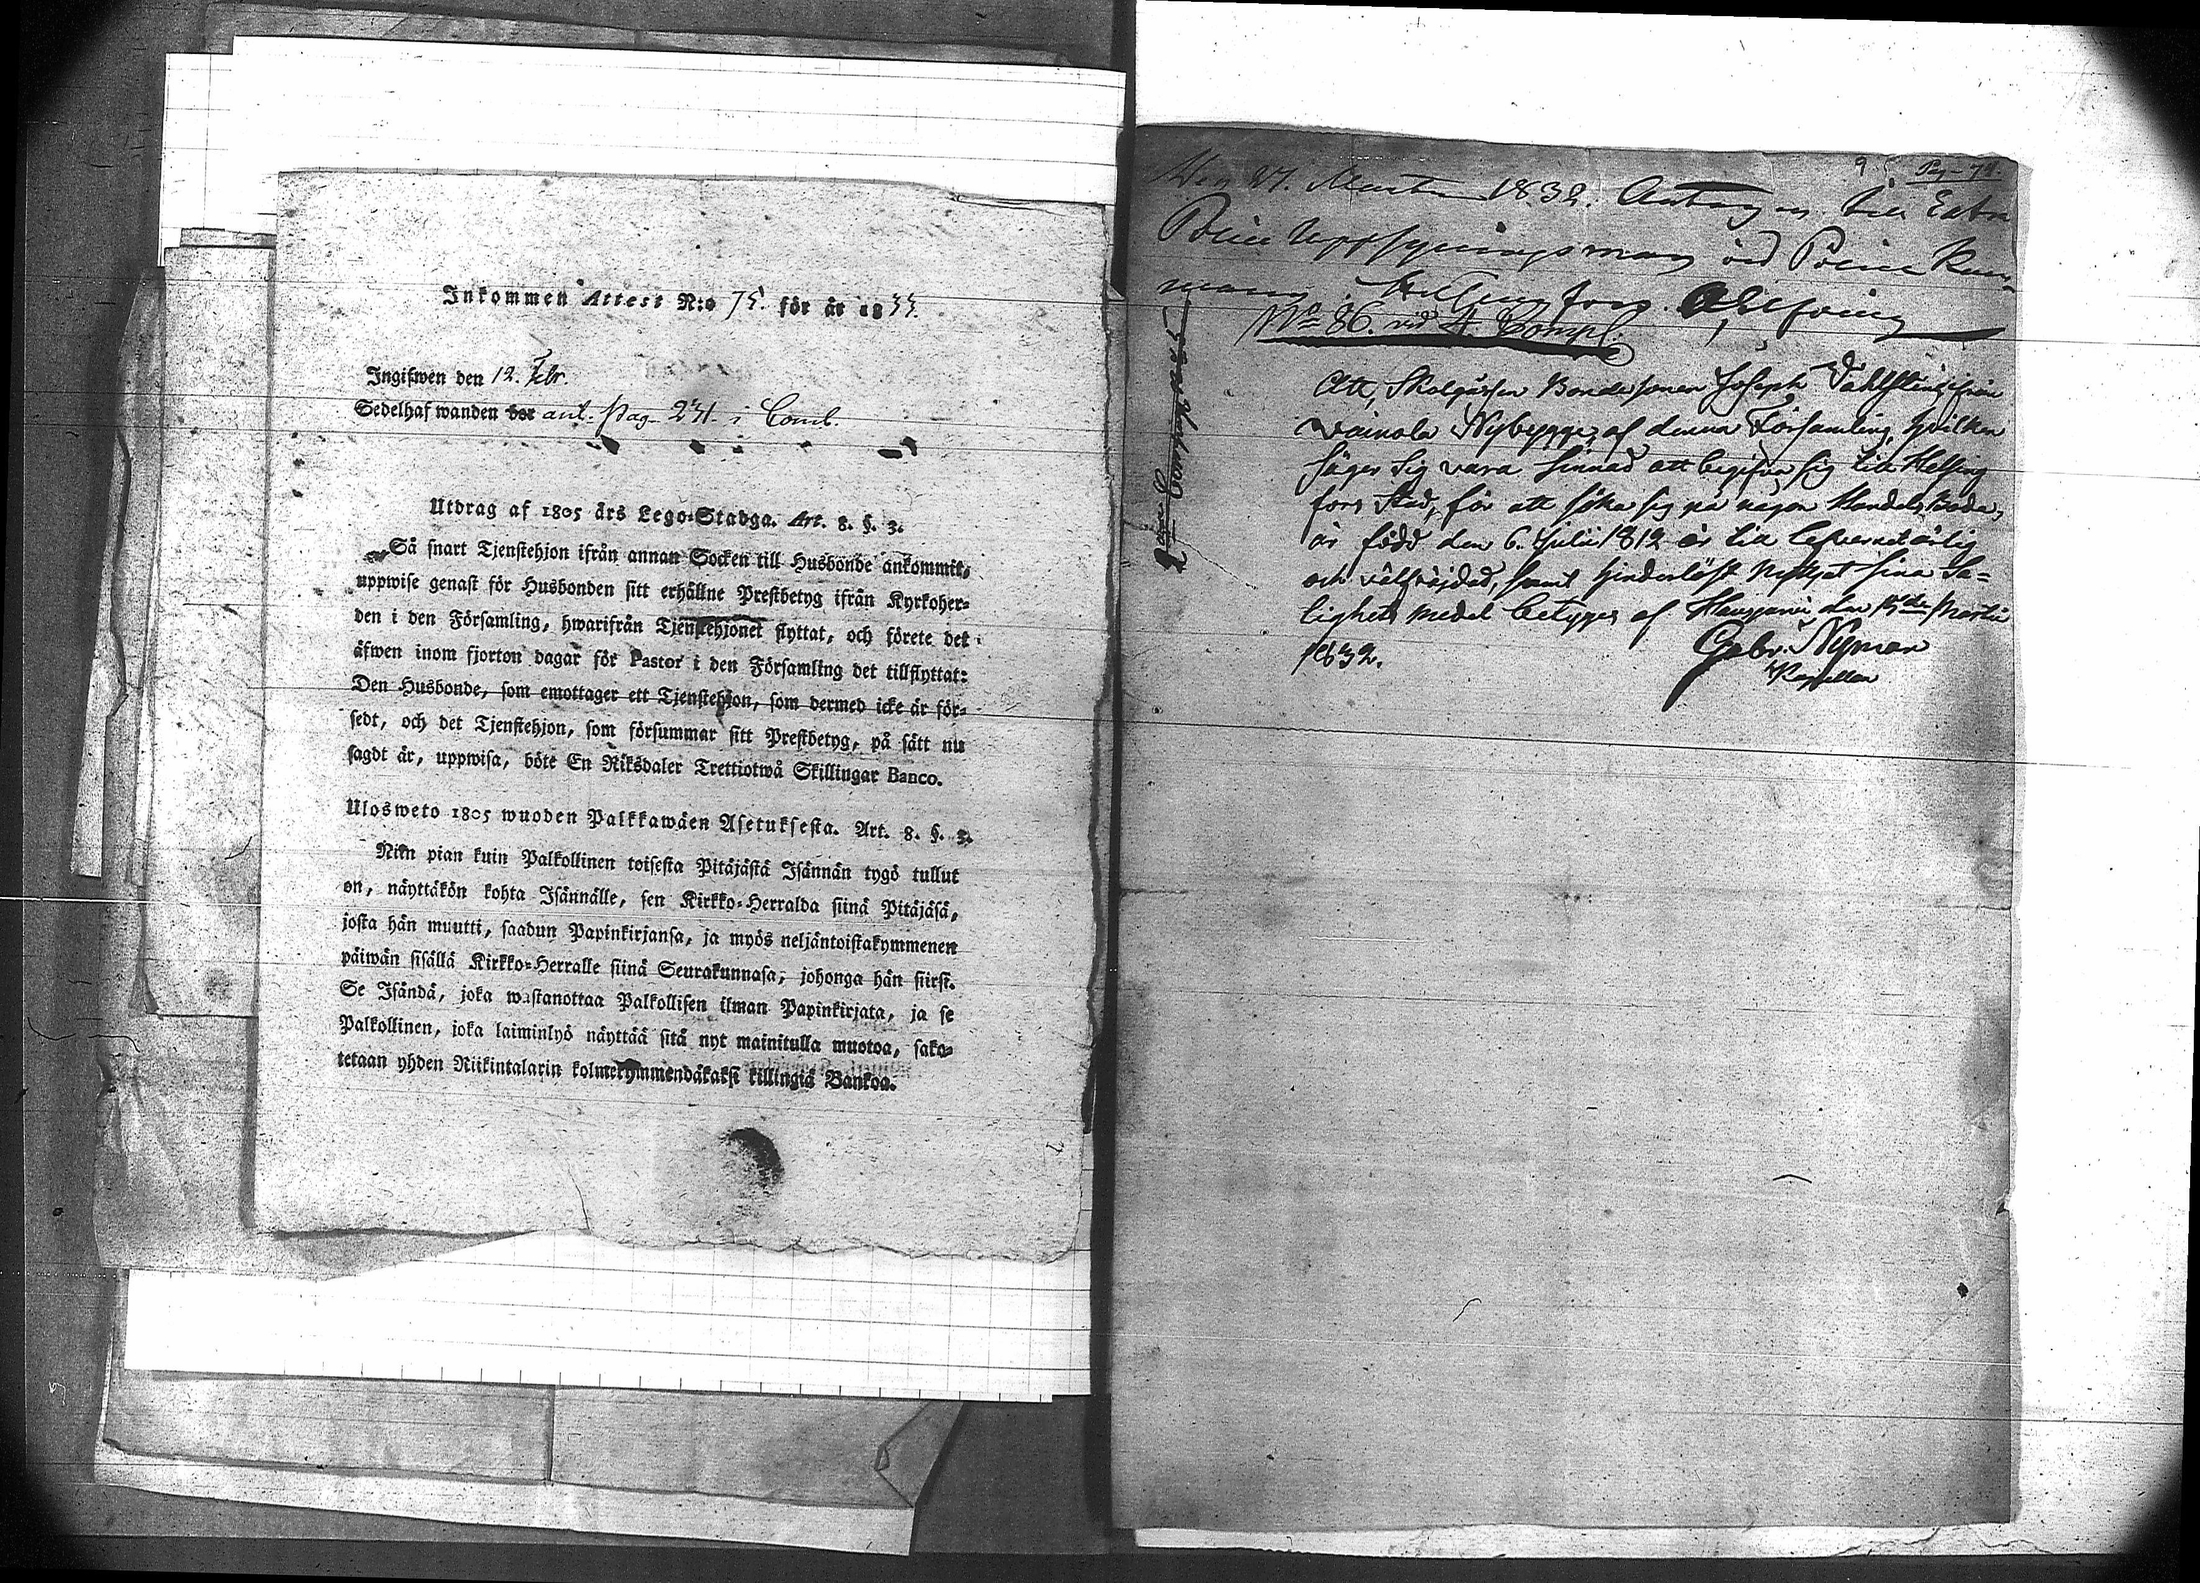 Inkommen Attest N:o 75. för år 1833.
Ingifwen den 12. Febr.
Sedelhafwanden bor ant. Pag. 231. i Comb.
Utdrag af 1805 års Lego-Stadga. Art. 8. §. 3.
Så snart Tjenstehjon ifrån annan Socken till Husbonde ankommit,
uppwise genast för Husbonden sitt erhållne Prestbetyg ifrån Kyrkoher-
den i den Församling, hwarifrån Tjenstehjonet flyttat, och förete det
äfwen inom fjorton dagar för Pastor i den Församling det tillflyttat:
Den Husbonde, som emottager ett Tjenstehjon, som dermed icke är för-
sedt, och det Tjenstehjon, som försummar sitt Prestbetyg, på sätt nu
sagdt är, uppwisa, böte En Riksdaler Trettiotwå Skillingar Banco.
Ulosweto 1805 wuoden Palkkawäen Asetuksesta. Art. 8. §. 3.
Niin pian kuin Palkollinen toisesta Pitäjästä Isännän tygö tullut
on, näyttäkön kohta Isännälle, sen Kirkko-Herralda siinä Pitäjäsä,
josta hän muutti, saadun Papinkirjansa, ja myös neljäntoistakymmenen
päiwän sisällä Kirkko-Herralle siinä Seurakunnasa, johonga hän siirsi.
Se Isändä, joka wastanottaa Palkollisen ilman Papinkirjata, ja se
Palkollinen, joka laiminlyö näyttää sitä nyt mainitulla muotoa, sako-
tetaan yhden Riikintalarin kolmekymmendäkaksi killingiä Bankoa.
9 Pag. 78.
Den 27. Martii 1832. Antagen till Extra
Police Uppsyningsman vid Police Kam-
maren Helsingfors.
No 86. vid 4 Comp.
Att, Skolgossen Bondesonen Joseph Dahlsten ifrån
Wäinola Nybygge, af denna Församling, hvilken
säger sig vara sinnad att begifva sig till Helsing
fors Stad, för att söka sig på någon Handels Bode,
är född den 6. Julii 1812 är till lefvernet ärlig
och välfräjdad, samt hinderlöst nyttjat sina Sa-
lighets medel betyges af Hausjärvi den 15de Martii
1832.
Gabr. Nyman
Kapellan